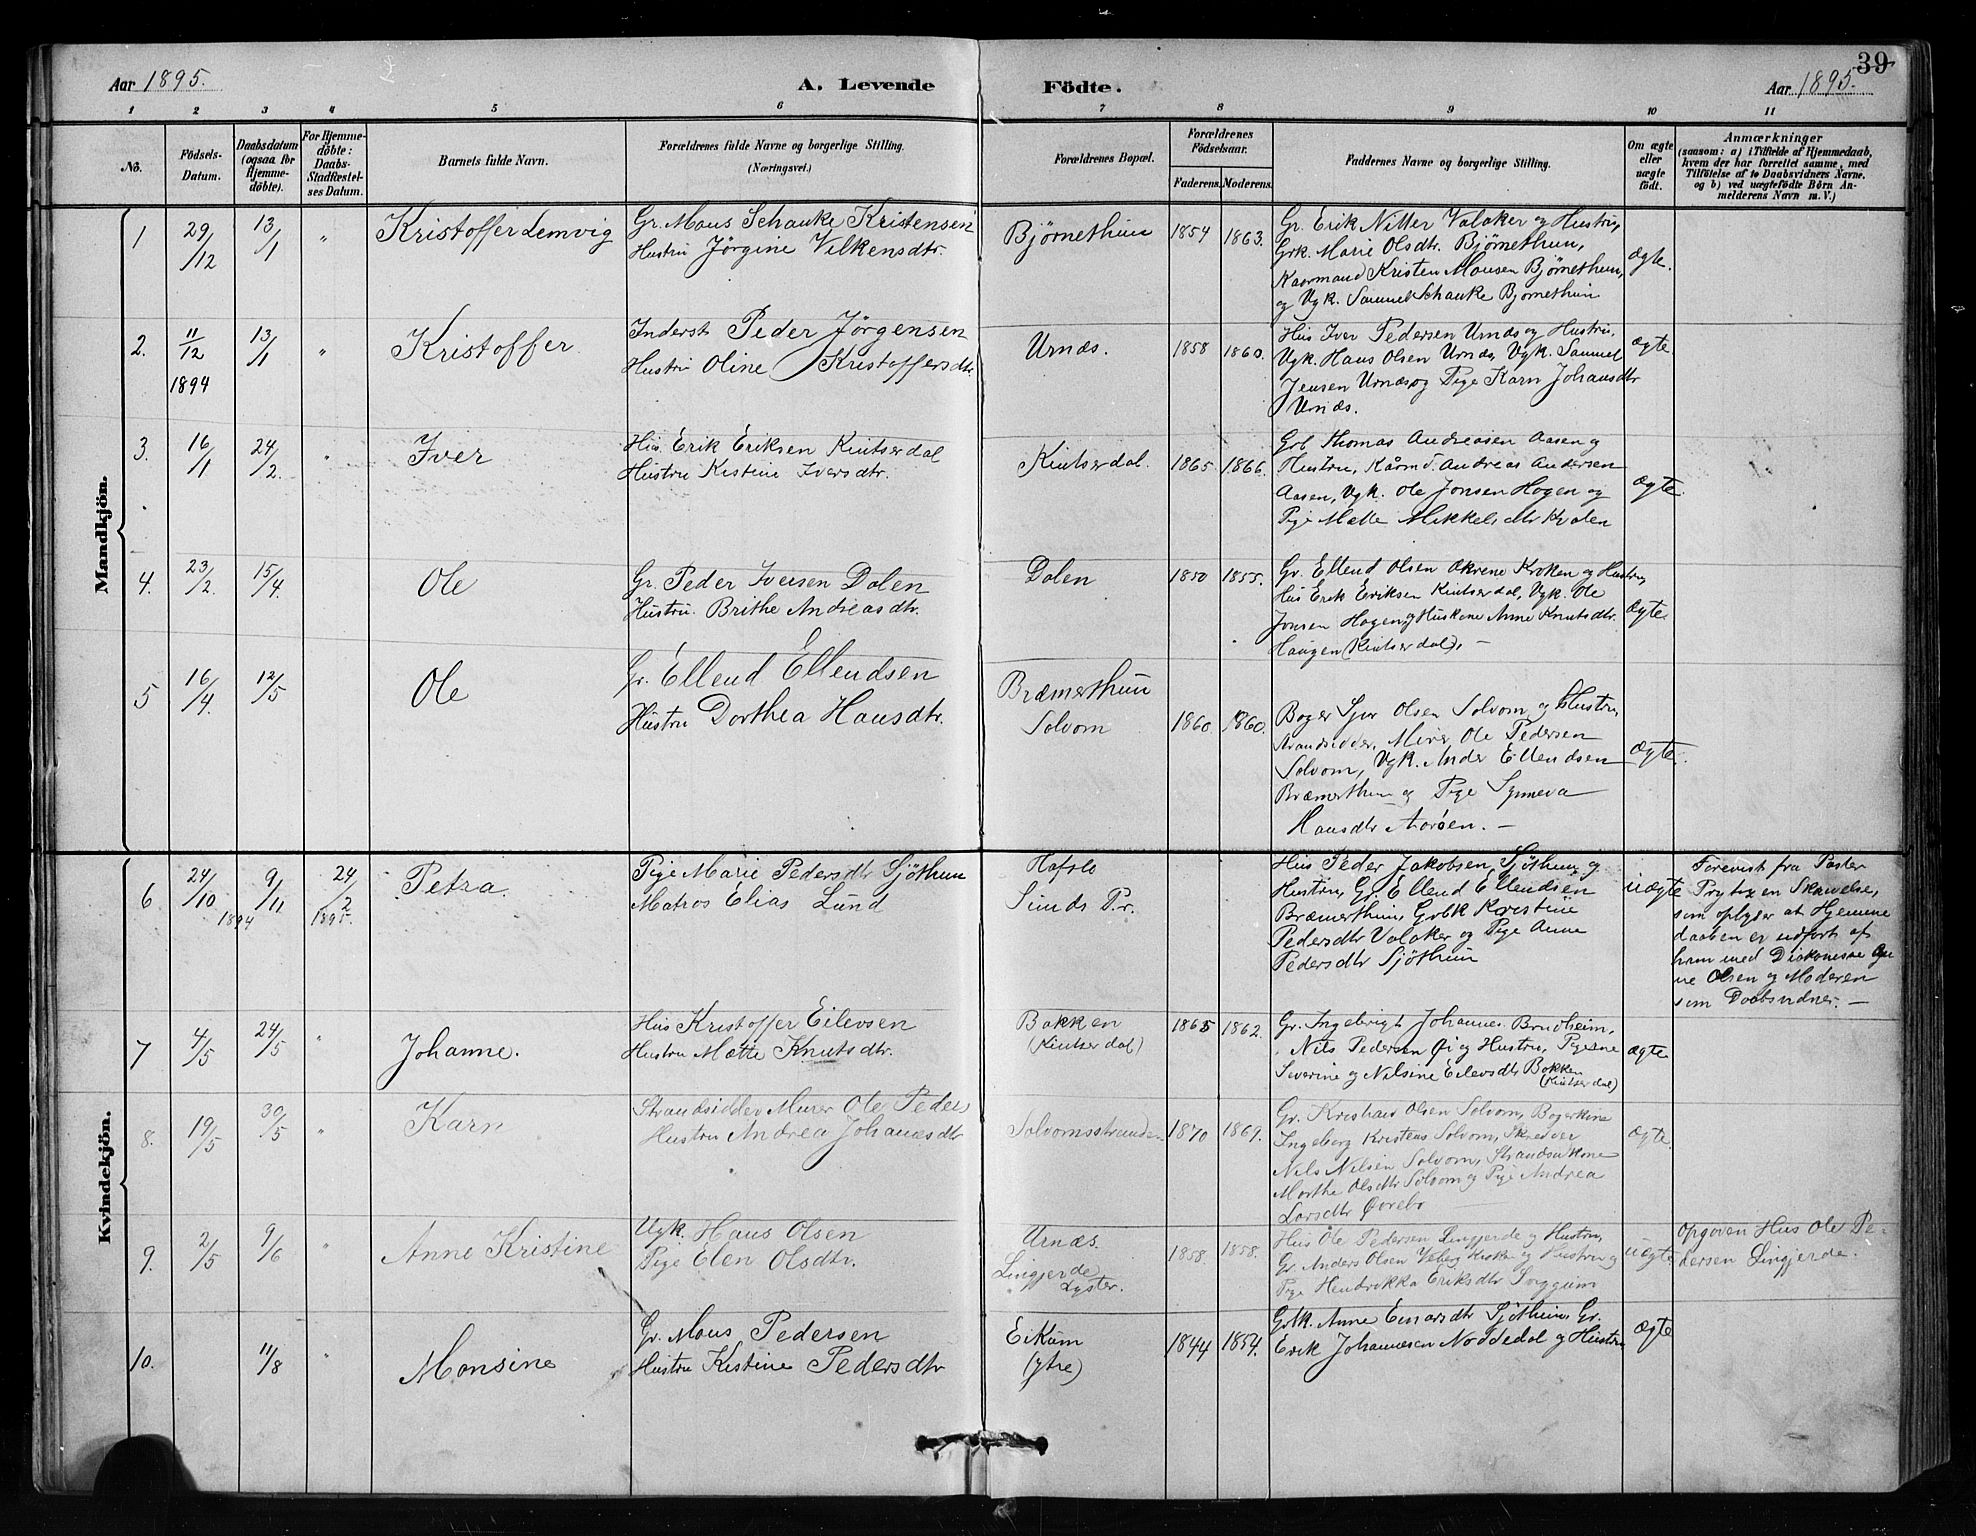 39
Aar 1895.
A. Levende
Födte.
Aar 1895.
1 2 3 4 5 6 7 8 9 10 11
No.
Födsels-
Datum.
Daabsdatum
(ogsaa for
Hjemme-
döbte).
For Hjemme-
döbte:
Daabs-
Stadfæstel-
ses Datum.
Barnets fulde Navn.
Forældrenes fulde Navne og borgerlige Stilling.
(Næringsvei.)
Forældrenes Bopæl.
Forældrenes
Födselsaar.
Faderens. Moderens.
Faddernes Navne og borgerlige Stilling.
Om ægte
eller
uægte
födt.
Anmærkninger
(saasom: a) i Tilfælde af Hjemmedaab,
hvem der har forrettet samme, med
Tilföielse af to Daabsvidners Navne,
og b) ved uægtefödte Börn An-
melderens Navn m. V.)
Mandkjön.
1
29/12
13/1
"
Kristoffer Lemvig
Gr. Mons Schanke Kristensen
Hustru Jörgine Vilkensdtr.
Bjørnethun
1854
1863.
Gr. Erik Nitter Valaker og Hustru,
Grk. Marie Olsdtr. Bjørnethun,
Kaarmand Kristen Monsen Bjørnethun,
og Ugk. Samuel Schanke Bjørnethun
ægte.
2.
11/12
1894
13/1
"
Kristoffer
Inderst Peder Jörgensen
Hustru Oline Kristoffersdtr.
Urnæs.
1858
1860.
Hus Iver Pedersen Urnæs og Hustru,
Ugk. Hans Olsen Urnæs, Ugk. Samuel
Jensen Urnæs og Pige Karn Johansdtr
Urnæs.
ægte.
3.
16/1
24/2.
"
Iver
Hus. Erik Eriksen Kinserdal
Hustru Kistine Iversdtr.
Kinserdal.
1865
1866.
Grb. Thomas Andreasen Aasen og
Hustru, Kårmd. Andreas Andersen
Aasen, Ugk. Ole Jonsen Hagen og
Pige Mætte Mikkelsdtr Kvalen
ægte.
4.
23/2.
15/4.
Ole
Gr. Peder Iversen Dalen
Hustru. Brithe Andreasdtr.
Dalen
1850
1855.
Gr. Ellend Olsen Kroken og Hustru,
Hus Erik Eriksen Kinserdal, Ugk. Ole
Jonsen Hagen og Huskone Anne Knutsdtr.
Haugen (Kinserdal). –
ægte.
5
16/4.
12/5
Ole
Gr. Ellend Ellendsen
Hustru Dorthea Hansdtr.
Bræmerthun
Solvorn
1860.
1860.
Bøger Sjur Olsen Solvorn og Hustru,
Strandsidder, Murer Ole Pedersen
Solvorn, Ugk. Anders Ellendsen
Bræmerthun og Pige Synneva
Hansdtr Aarøen. –
ægte.
Kvindekjön.
6
24/10
9/11
1894
24/2
1895.
Petra
Pige Marie Pedersdtr Sjöthun
Matros Elias Lund
Hafslo
Sunds Pr.
Hus Peder Jakobsen Sjöthun og
Hustru, Gr. Ellend Ellendsen
Bræmerthun, Gr[b]k Kristine
Pedersdtr Valaker og Pige Anne
Pedersdtr Sjöthun
uægte
Forevist fra Pastor
Skrivelse,
som oplyser at Hjemme
daaben er udført af
ham med Diakonesse
Olsen og Moderen
som Daabsvidner. –
7
4/5
24/5
"
Johanne.
Hus Kristoffer Eilevsen
Hustru Mætte Knutsdtr.
Bakken
(Kinserdal)
1865
1862.
Gr. Ingebrigt Johannes. Brudheim,
Nils Pedersen Øi og Hustru, Pigerne
Severine og Nilsine Eilevsdtr Bakken
(Kinserdal)
ægte
8.
19/5
30/5
"
Karn
Strandsidder Murer Ole Peders
Hustru Andrea Johannesdtr
Solvornsstranden
1870
1869.
Gr. Kristian Olsen Solvorn, Bøgerkone
Ingeborg Kristens Solvorn, Skredder
Nils Nilsen Solvorn, Strandsidkone
Marthe Olsdtr Solvorn og Pige Andrea
Larsdtr Øvrebø
ægte.
9.
2/5
9/6
"
Anne Kristine
Ugk. Hans Olsen
Pige Elen Olsdtr.
Urnæs.
Lingjerde
Lyster.
1858.
1858.
Hus Ole Pedersen Lingjerde og Hustru,
Gr. Anders Olsen og Hustru og
Pige Hendrikka Eriksdtr
uægte
Opgiven Hus Ole Pe-
dersen Lingjerde.
10.
11/8
"
Monsine
Gr. Mons Pedersen
Hustru Kistine Pedersdtr
Eikum
(ytre)
1844
1854.
Grbk. Anne Einarsdtr Sjöthun, Gr.
Erik Johannesen Noddedal og Hustru
ægte